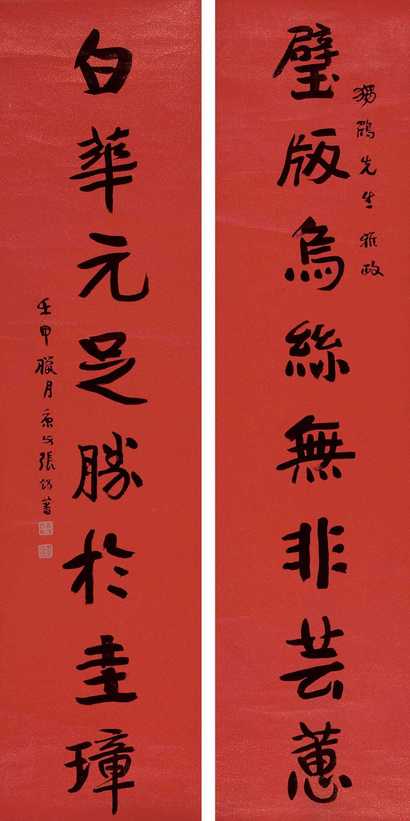 璧版烏絲無非芸蕙
獨鶴先生雅政
白華元足勝於圭璋
壬申臘月 張